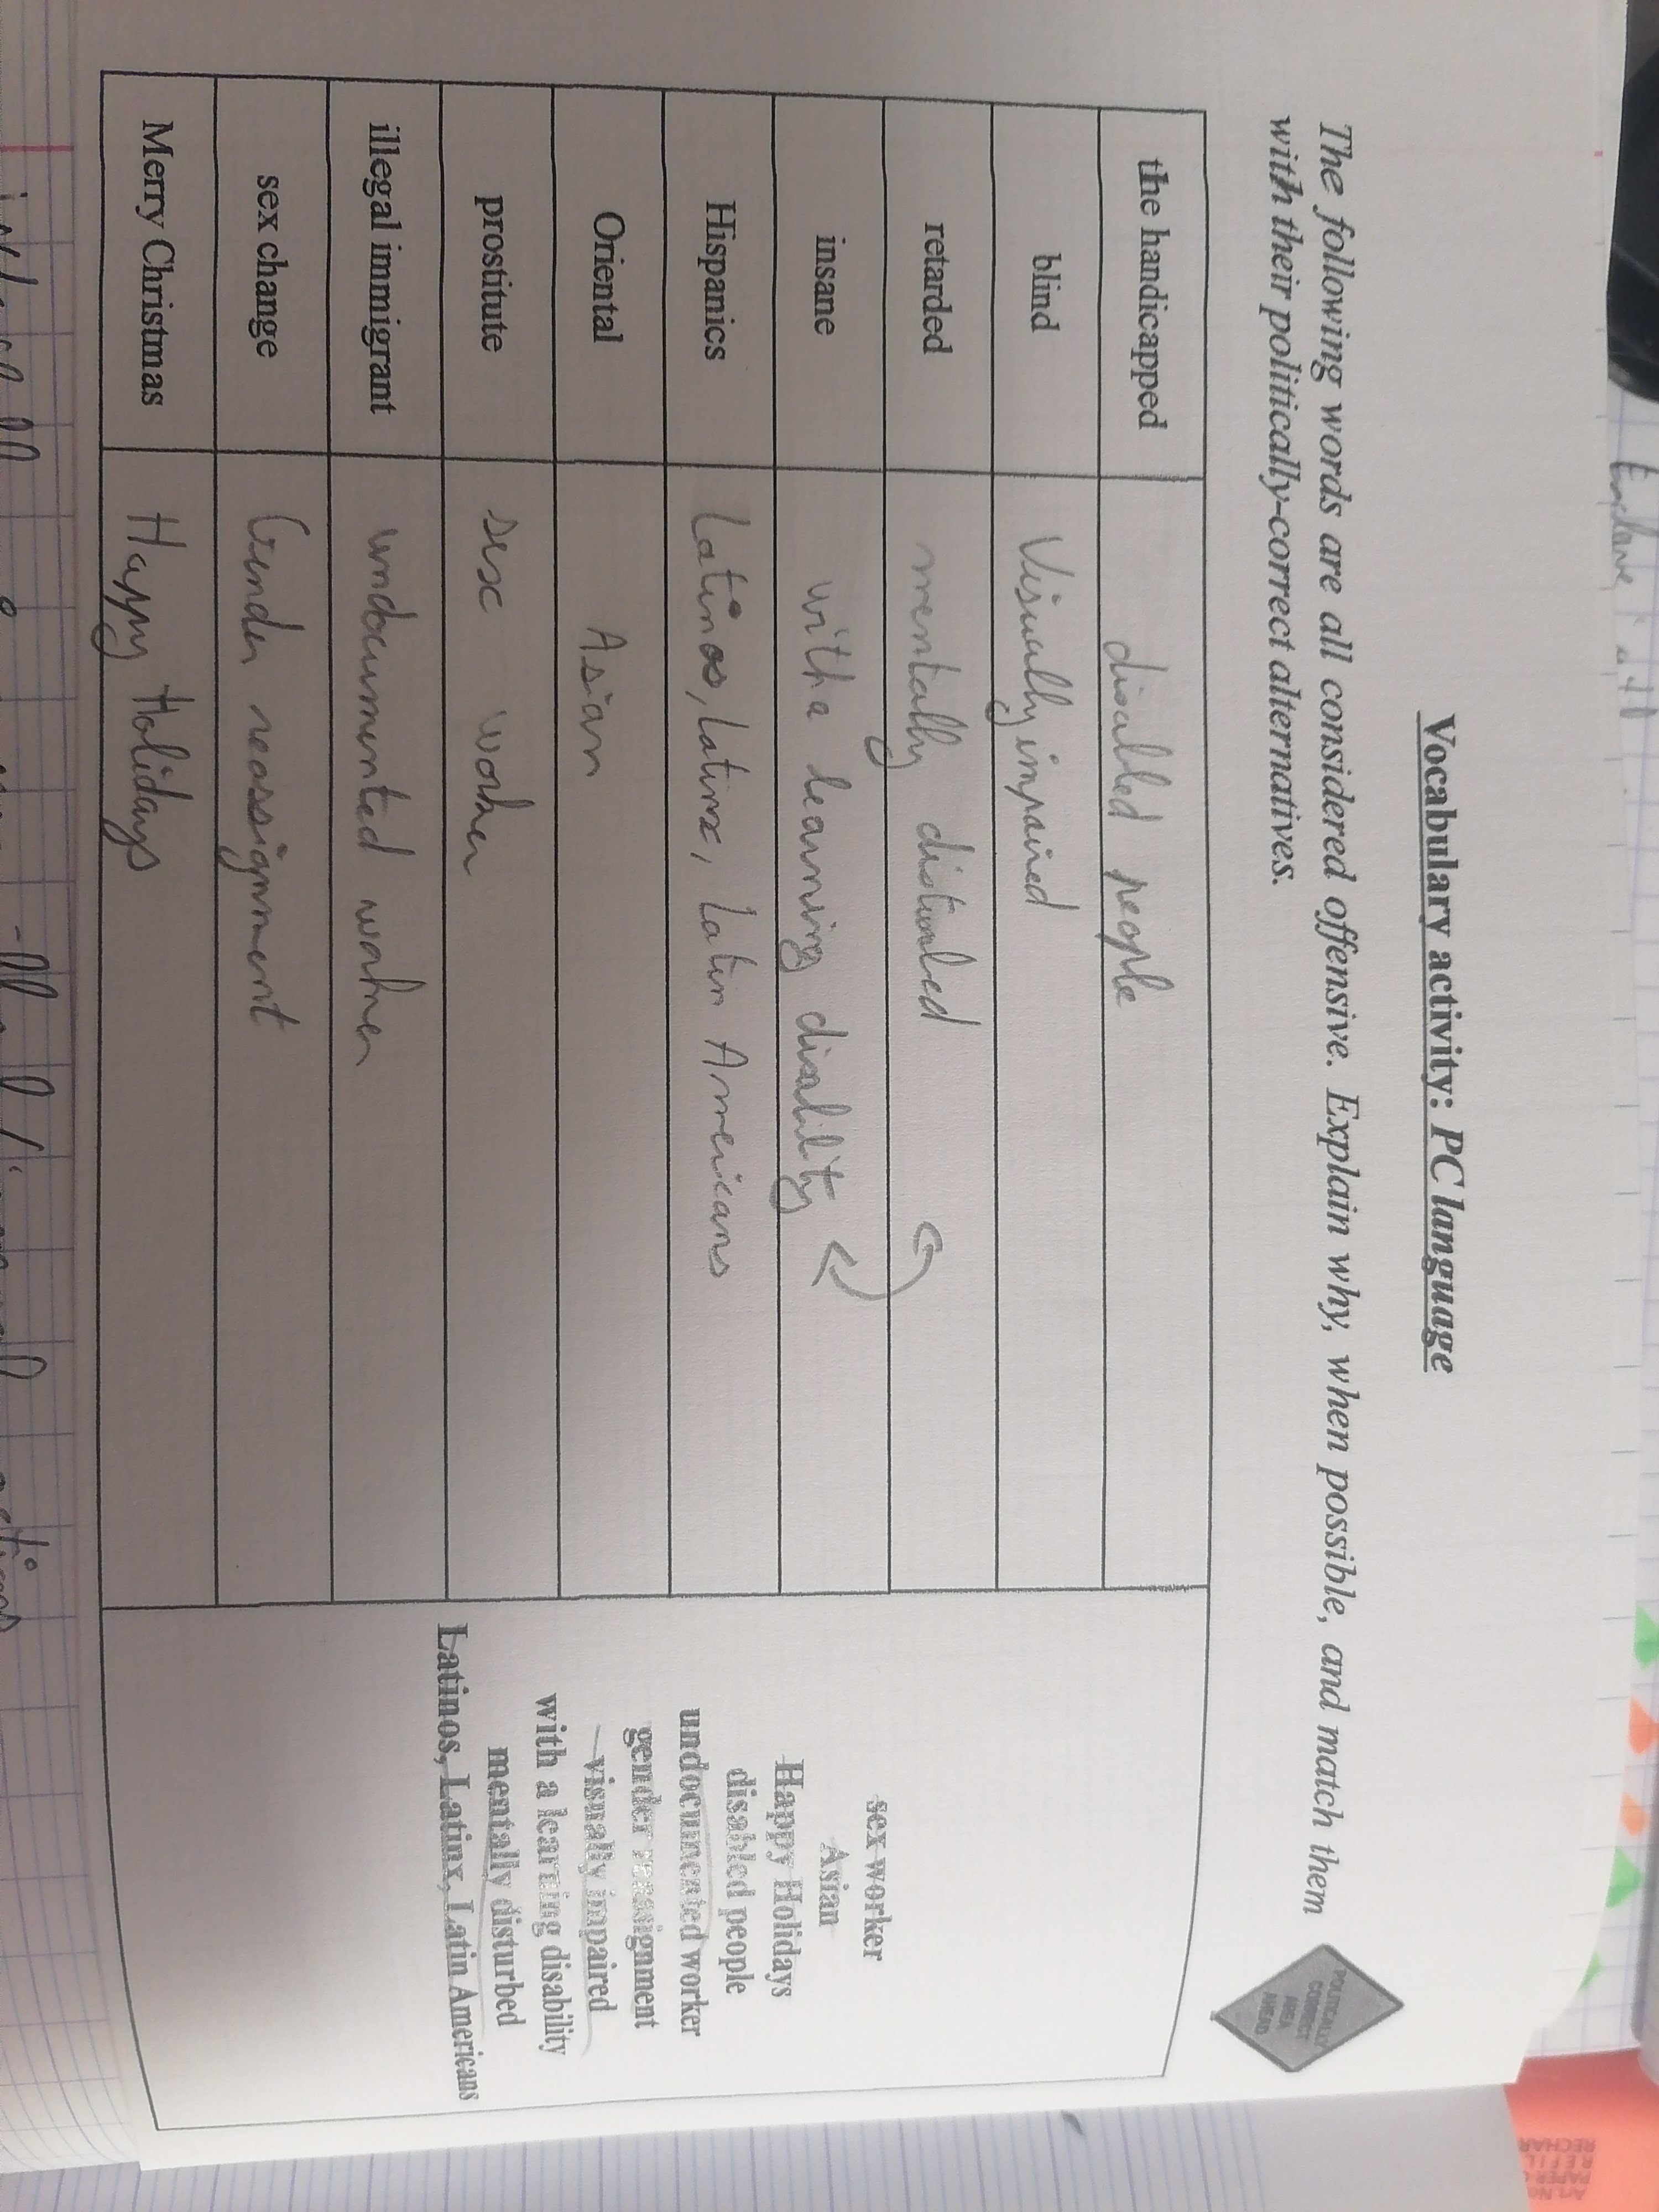 Vocabulary activity: PC language
The following words are all considered offensive. Explain why, when possible, and match them
with their politically-correct alternatives.
POLITICALLY
CORRECT
AREA
AHEAD
the handicapped disabled people
blind Visually impaired
retarded mentally disturbed
insane with a learning disability
Hispanics Latinos, Latinx, Latin Americans
Oriental Asian
prostitute sex worker
illegal immigrant undocumented worker
sex change Gender reassignment
Merry Christmas Happy Holidays
sex worker
Asian
Happy Holidays
disabled people
undocumented worker
gender reassignment
visually impaired
with a learning disability
mentally disturbed
Latinos, Latinx, Latin Americans
RECHAR
REFIL
PAPER
Art.No